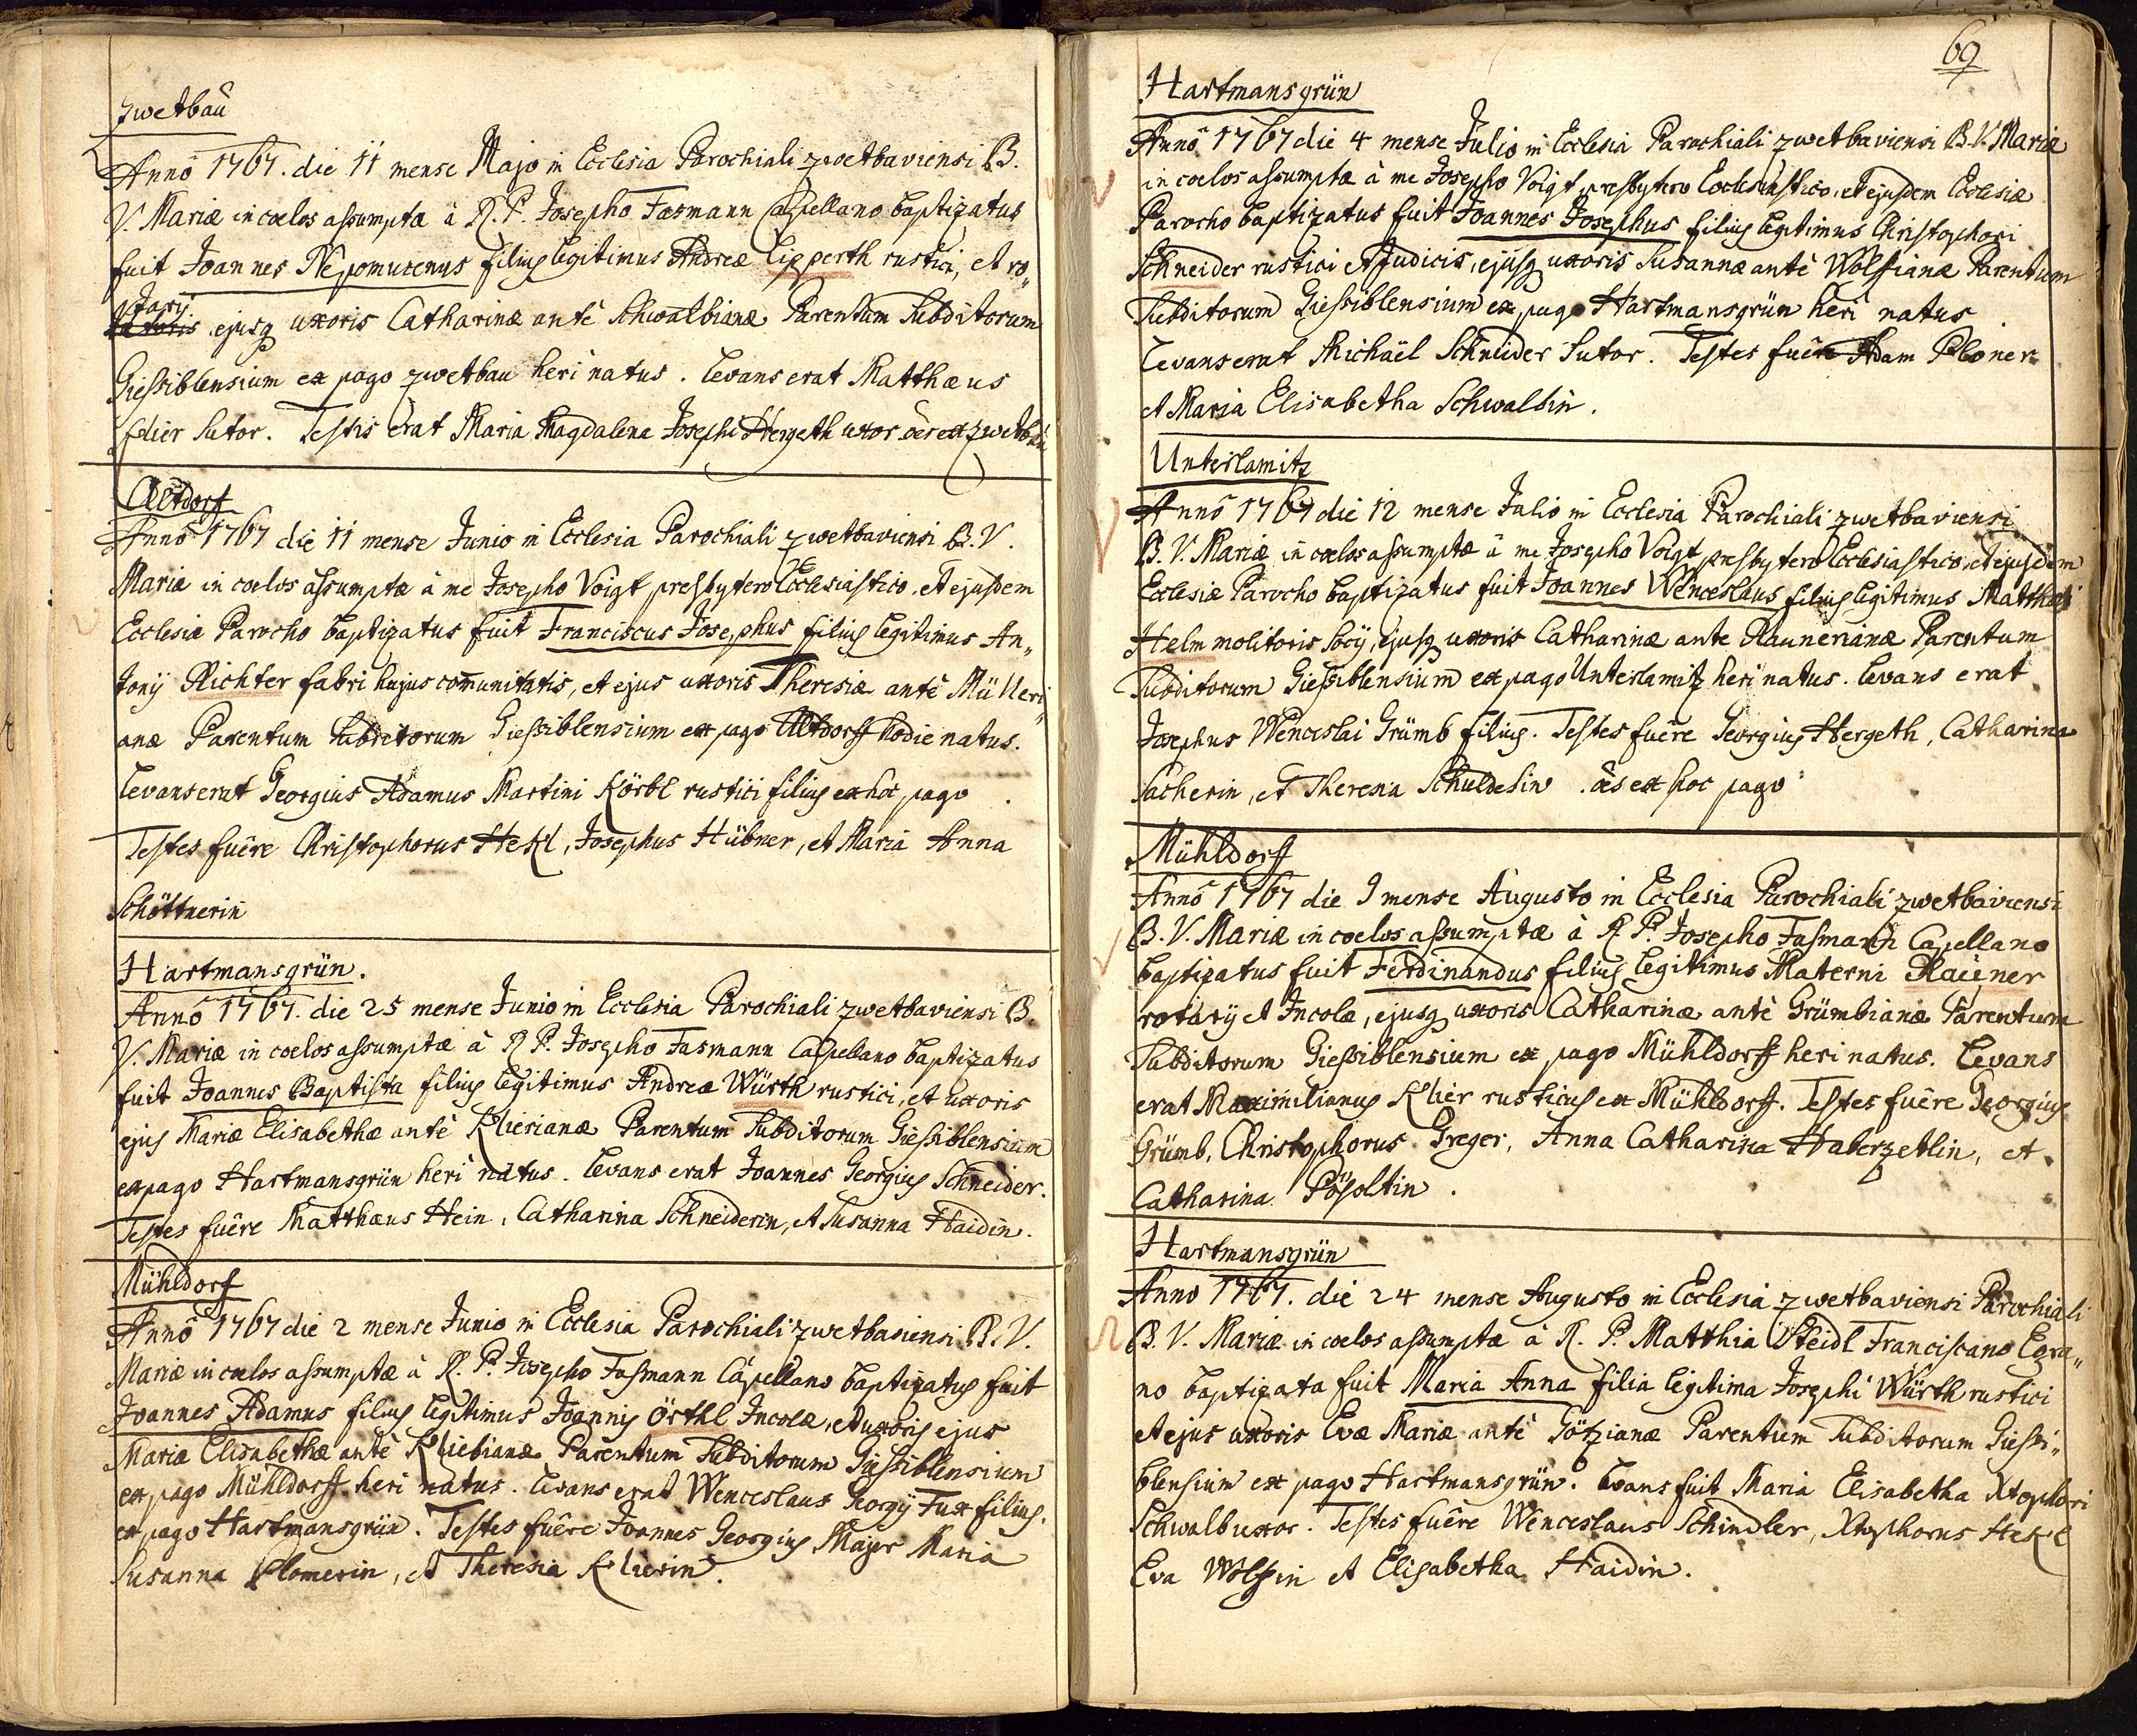 Zwetbau
Anno 1767. die 11 mense Majo in Ecclesia Parochiali Zwetbaviensi B.
V. Mariæ in cœlos assumptæ à R. P. Josepho Fasmann Capellano baptizatus
fuit Joannes Nepomucenus filius legitimus Andreæ Lipperth rustici, et ro„
tarij ejusq uxoris Catharinæ antè Schwalbianæ Parentum Subditorum
Giessiblensium ex pago Zwetbau heri natus. Levans erat Matthæus
Sutor. Testis erat Maria Magdalena Josephi Hergeth uxor oēs ex Zwetbau
Altdorf
Anno 1767 die 11 mense Junio in Ecclesia Parochiali Zwetbaviensi B. V.
Mariæ in cœlos assumptæ à me Josepho Voigt presbytero Ecclesiastico, et ejusdem
Ecclesiæ Parocho baptizatus fuit Franciscus Josephus filius legitimus An„
tonij Richter fabri hujus com̄unitatis, et ejus uxoris Theresiæ antè Mülleri„
anæ Parentum Subditorum Giessiblensium ex pago Altdorff hodie natus.
Levans erat Georgius Adamus Martini Körbl rustici filius ex hoc pago.
Testes fuêre Christophorus Hekl, Josephus Hübner, et Maria Anna
Schöttnerin
Hartmansgrün.
Anno 1767. die 25 mense Junio in Ecclesia Parochiali Zwetbaviensi B.
V. Mariæ in cœlos assumptæ à R. P. Josepho Fasmann Capellano baptizatus
fuit Joannes Baptista filius legitimus Andreæ Würth rustici, et uxoris
ejus Mariæ Elisabethæ antè Klierianæ Parentum Subditorum Giessiblensium
ex pago Hartmansgrün heri natus. Levans erat Joannes Georgius Schneider.
Testes fuêre Matthæus Hein, Catharina Schneiderin, et Susanna Haidin.
Mühldorf
Anno 1767 die 2 mense Junio in Ecclesia Parochiali Zwetbaviensi B. V.
Mariæ in cœlos assumptæ à R. P. Josepho Fasmann Capellano baptizatus fuit
Joannes Adamus filius legitimus Joannis Örthl Incolæ, et uxoris ejus
Mariæ Elisabethæ antè Kliebianæ Parentum Subditorum Giessiblensium
ex pago Mühldorff heri natus. Levans erat Wenceslaus Georgij Fux filius.
ex pago Hartmansgrün. Testes fuêre Joannes Georgius Majer Maria
Susanna Plomerin, et Theresia Klierin.
69
Hartmansgrün
Anno 1767 die 4 mense Julio in Ecclesia Parochiali Zwetbaviensi B. V. Mariæ
in cœlos assumptæ à me Josepho Voigt presbytero Ecclesiastico, et ejusdem Ecclesiæ
Parocho baptizatus fuit Joannes Josephus filius legitimus Christophori
Schneider rustici et Judicis, ejusq uxoris Susannæ antè Wolfianæ Parentum
Subditorum Giessiblensium ex pago Hartmansgrün heri natus.
Levans erat Michaël Schneider Sutor. Testes fuêre Adam Ploner
et Maria Elisabetha Schwalbin.
Unterlamitz
Anno 1767 die 12 mense Julio in Ecclesia Parochiali Zwetbaviensi
B. V. Mariæ in cœlos assumptæ à me Josepho Voigt presbytero Ecclesiastico, et ejusdem
Ecclesiæ Parocho baptizatus fuit Joannes Wenceslaus filius legitimus Matthæi
Helm molitoris socij, ejusq uxoris Catharinæ ante Raunerianæ Parentum
Subditorum Giessiblensium ex pago Unterlamitz heri natus. Levans erat
Josephus Wenceslai Grümb filius. Testes fuêre Georgius Hergeth, Catharina
Sacherin, et Theresia Schuldesin. oēs ex hoc pago
Mühldorff
Anno 1767 die 1 mense Augusto in Ecclesia Parochiali Zwetbaviensi
B. V. Mariæ in cœlos assumptæ à R. P. Josepho Fasmann Capellano
baptizatus fuit Ferdinandus filius legitimus Materni Rauner
rotarij et Incolæ, ejusq uxoris Catharinæ antè Grümbianæ Parentum
Subditorum Giessiblensium ex pago Mühldorff heri natus. Levans
erat Maximilianus Klier rusticus ex Mühldorff. Testes fuêre Georgius
Grümb, Christophorus Greger, Anna Catharina Haberzetlin, et
Catharina Pösoltin.
Hartmansgrün
Anno 1767. die 24 mense Augusto in Ecclesia Zwetbaviensi Parochiali
B. V. Mariæ in cœlos assumptæ à R. P. Matthia Steidl Franciscano Egra„
no baptizata fuit Maria Anna filia legitima Josephi Würth rustici
et ejus uxoris Evæ Mariæ antè Götzianæ Parentum Subditorum Giessi„
blensium ex pago Hartmansgrün. Levans fuit Maria Elisabetha Xtophori
Schwalb uxor. Testes fuêre Wenceslaus Schindler, Xtophorus Hekl
Eva Wolfin et Elisabetha Haidin.